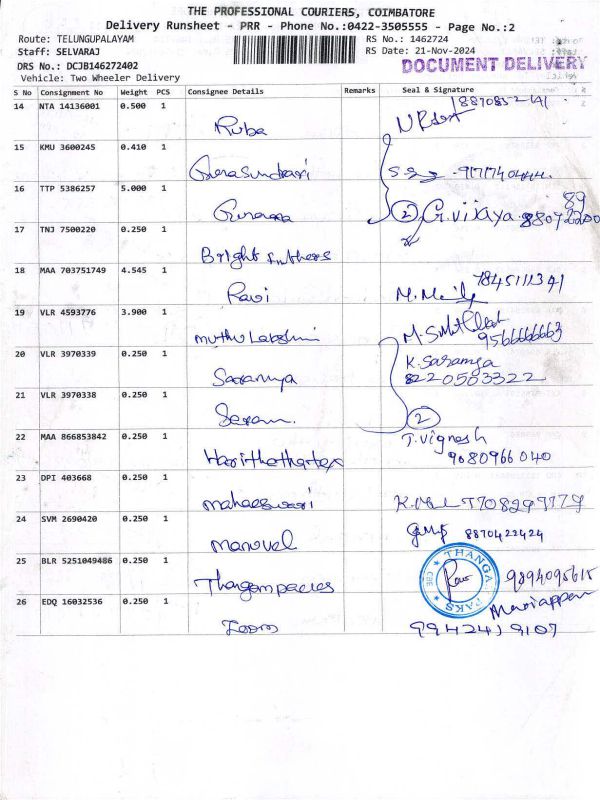 THE PROFESSIONAL COURIERS, COIMBATORE
Delivery Runsheet - PRR - Phone No.:0422-3505555 - Page No.:2
Route: TELUNGUPALAYAM RS No.: 1462724
Staff: SELVARAJ RS Date: 21-Nov-2024
DRS No.: DCJB146272402 DOCUMENT DELIVERY
Vehicle: Two Wheeler Delivery
S No Consignment No Weight PCS Consignee Details Remarks Seal & Signature
14 NTA 14136001 0.500 1 Ruba
15 KMU 3600245 0.410 1
16 TTP 5386257 5.000 1 2 G.vijaya
17 TNJ 7500220 0.250 1 Bright
18 MAA 703751749 4.545 1 Ravi 7845111341
19 VLR 4593776 3.900 1 muthu Lakshmi 9566666663
20 VLR 3970339 0.250 1 Saranya K. Saranya
8220503322
21 VLR 3970338 0.250 1 2
22 MAA 866853842 0.250 1 T. Vignesh
9080966040
23 DPI 403668 0.250 1 maheeswari
24 SVM 2690420 0.250 1 manuvel 8870422424
25 BLR 5251049486 0.250 1 THANGA PAKS CBE 9894095615
Mariappan
26 EDQ 16032536 0.250 1 9942419107